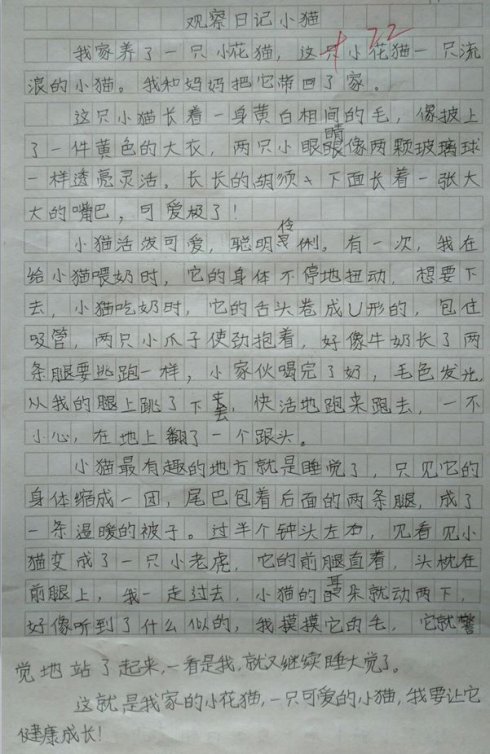 观察日记小猫
我家养了一只小花猫，这只小花猫一只流
浪的小猫。我和妈妈把它带回了家。
这只小猫长着一身黄白相间的毛，像披上
了一件黄色的大衣，两只小眼睛像两颗玻璃球
一样透亮灵活。长长的胡须、下面长着一张大
大的嘴巴，可爱极了！
小猫活泼可爱，聪明伶俐。有一次，我在
给小猫喂奶时，它的身体不停地扭动，想要下
去，小猫吃奶时，它的舌头卷成U形的，包住
吸管，两只小爪子使劲抱着，好像牛奶长了两
条腿要逃跑一样，小家伙喝完了奶，毛色发光，
从我的腿上跳了下去，快活地跑来跑去，一不
小心，在地上翻了一个跟头。
小猫最有趣的地方就是睡觉了，只见它的
身体缩成一团，尾巴包着后面的两条腿，成了
一条温暖的被子。过半个钟头左右，见看见小
猫变成了一只小老虎，它的前腿直着，头枕在
前腿上，我一走过去，小猫的耳朵就动两下，
好像听到了什么似的，我摸摸它的毛，它就警
觉地站了起来，一看是我，就又继续睡大觉了。
这就是我家的小花猫，一只可爱的小猫，我要让它
健康成长！